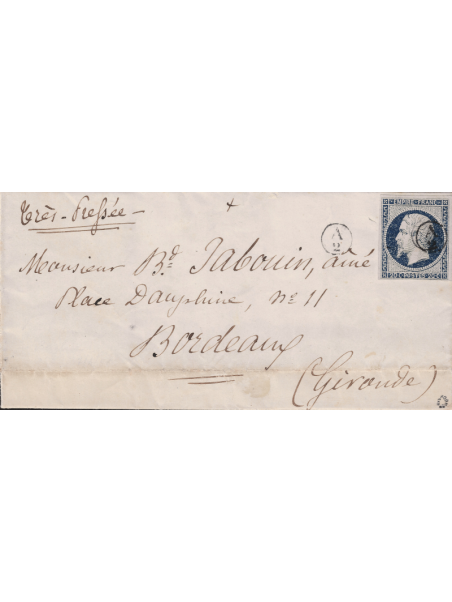 Très-Pressée-
A
2
EMPIRE FRANC
20 C POSTES 20 C
Monsieur Bd Jabouin, aîné
Place Dauphine, nº 11
Bordeaux
(Gironde)